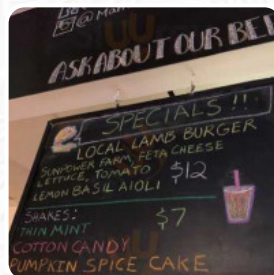 @ Mam
ASK ABOUT OUR BE
SPECIALS !!
LOCAL LAMB BURGER
SUNPOWER FARM, FETA CHEESE
LETTUCE, TOMATO $12
LEMON BASIL AIOLI
SHAKES: $7
THIN MINT
COTTON CANDY
PUMPKIN SPICE CAKE